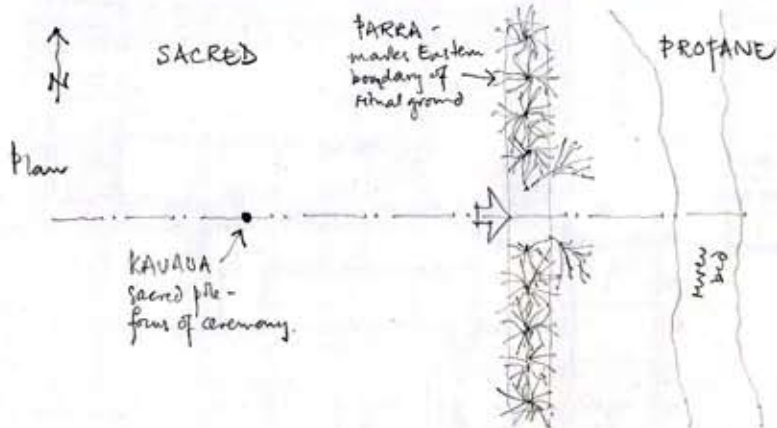 N
SACRED
PARRA -
marks Eastern
boundary of
ritual ground
PROFANE
Plan
KAUAUA
sacred pole -
focus of ceremony.
river
bed